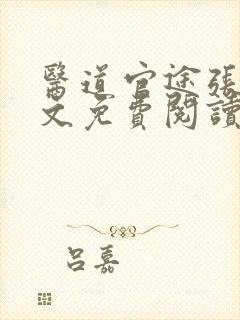 醫道官途張
文免費閱讀
呂嘉